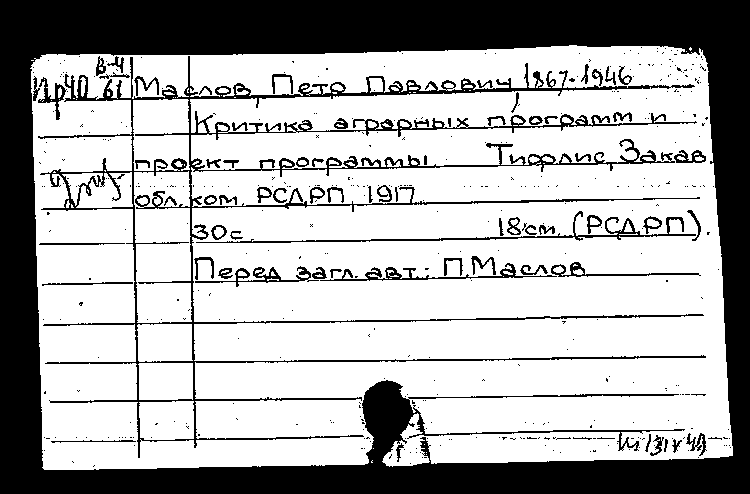 Пр40 В-4/61 Маслов, Петр Павлович, 1867-1946
Критика аграрных программ и
проект программы. Тифлис, Закав.
обл. ком. РСДРП, 1917
30с. 18см. (РСДРП).
Перед загл. авт.: П. Маслов